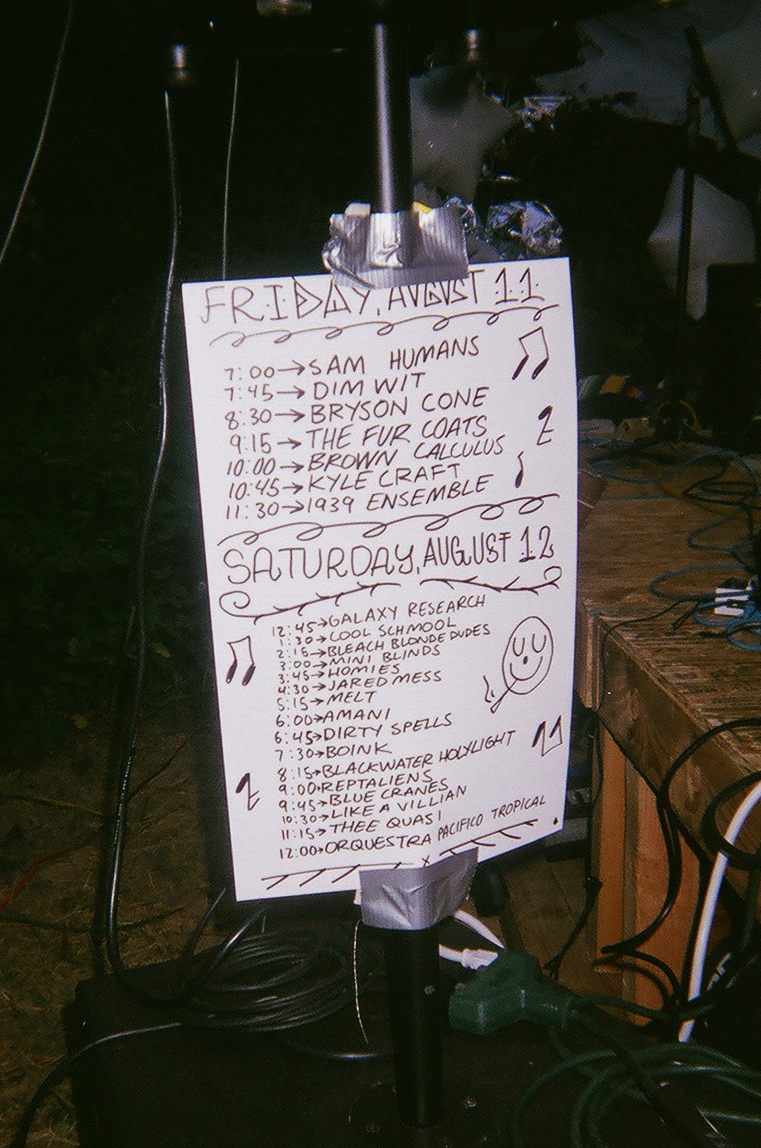 FRIDAY, AUGUST 11
7:00→SAM HUMANS
7:45→DIM WIT
8:30→BRYSON CONE
9:15→THE FUR COATS
10:00→BROWN CALCULUS
10:45→KYLE CRAFT
11:30→1939 ENSEMBLE
SATURDAY, AUGUST 12
12:45→GALAXY RESEARCH
1:30→COOL SCHMOOL
2:15→BLEACH BLONDE DUDES
3:00→MINI BLINDS
3:45→HOMIES
4:30→JARED MESS
5:15→MELT
6:00→AMANI
6:45→DIRTY SPELLS
7:30→BOINK
8:15→BLACKWATER HOLYLIGHT
9:00→REPTALIENS
9:45→BLUE CRANES
10:30→LIKE A VILLIAN
11:15→THEE QUASI
12:00→ORQUESTRA PACIFICO TROPICAL